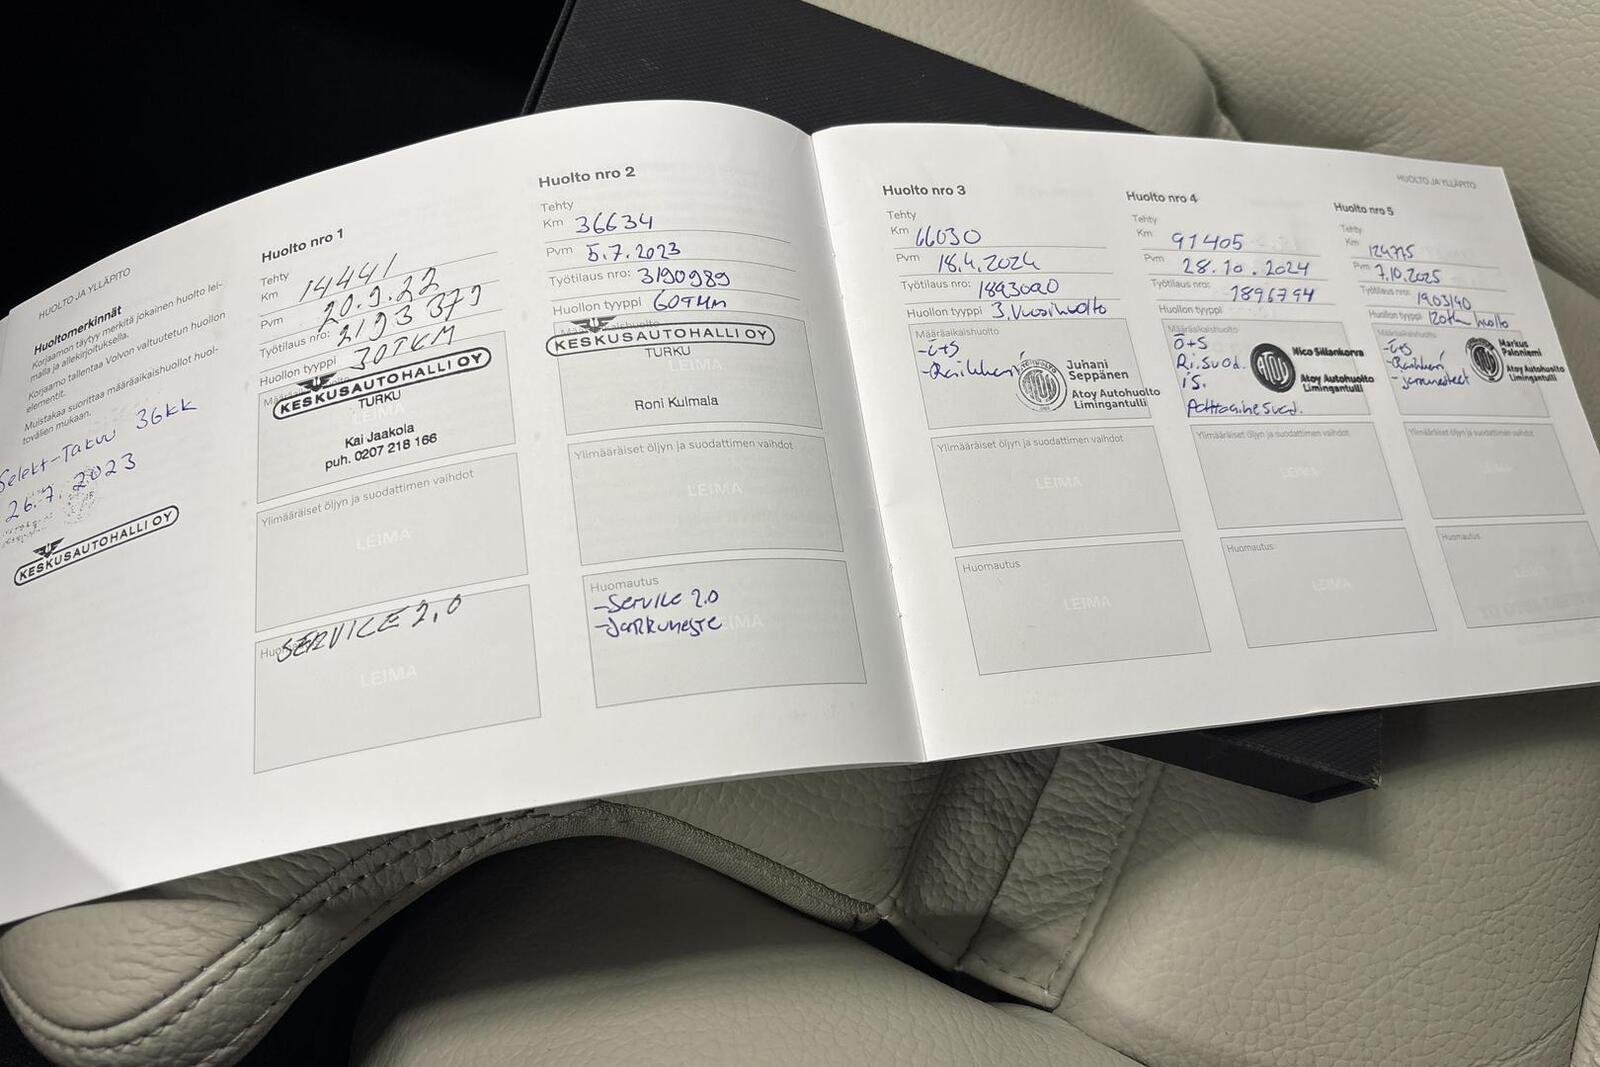 HUOLTO JA YLLÄPITO
Huoltomerkinnät
Korjaamon täytyy merkitä jokainen huolto lei-
malla ja allekirjoituksella.
Korjaamo tallentaa Volvon valtuutetun huollon
elementit.
Muistakaa suorittaa määräaikaishuollot huol-
tovälien mukaan.
Selekt-Takuu 36kk
26.7.2023
KESKUSAUTOHALLI OY
Huolto nro 1
Tehty
Km 14441
Pvm 20.9.22
Työtilaus nro: 2193379
Huollon tyyppi 30TKM
KESKUSAUTOHALLI OY
TURKU
LEIMA
Kai Jaakola
puh. 0207 218 166
Ylimääräiset öljyn ja suodattimen vaihdot
LEIMA
SERVICE 2.0
LEIMA
Huolto nro 2
Tehty
Km 36634
Pvm 5.7.2023
Työtilaus nro: 3190989
Huollon tyyppi 60TKM
Määräaikaishuolto
KESKUSAUTOHALLI OY
TURKU
LEIMA
Roni Kulmala
Ylimääräiset öljyn ja suodattimen vaihdot
LEIMA
Huomautus
-Service 2.0
-Jarruneste
LEIMA
Huolto nro 3
Tehty
Km 66030
Pvm 18.4.2024
Työtilaus nro: 1893020
Huollon tyyppi 3.Vuosihuolto
Määräaikaishuolto
-ö+S
-Raikkari
Juhani
Seppänen
Atoy Autohuolto
Limingantulli
Ylimääräiset öljyn ja suodattimen vaihdot
LEIMA
Huomautus
LEIMA
HUOLTO JA YLLÄPITO
Huolto nro 4
Tehty
Km 91405
Pvm 28.10.2024
Työtilaus nro: 1896794
Huollon tyyppi
Määräaikaishuolto
Ö+S
Ri.suod.
is.
Polttoainesuod.
ATOY
Nico Sillankorva
Atoy Autohuolto
Limingantulli
Ylimääräiset öljyn ja suodattimen vaihdot
LEIMA
Huomautus
LEIMA
Huolto nro 5
Tehty
Km 124775
Pvm 7.10.2025
Työtilaus nro: 1903140
Huollon tyyppi 120tkm huolto
Määräaikaishuolto
-ö+S
-Raikkari
-jarrunesteet
Markus
Paloniemi
Atoy Autohuolto
Limingantulli
Ylimääräiset öljyn ja suodattimen vaihdot
LEIMA
Huomautus
LEIMA